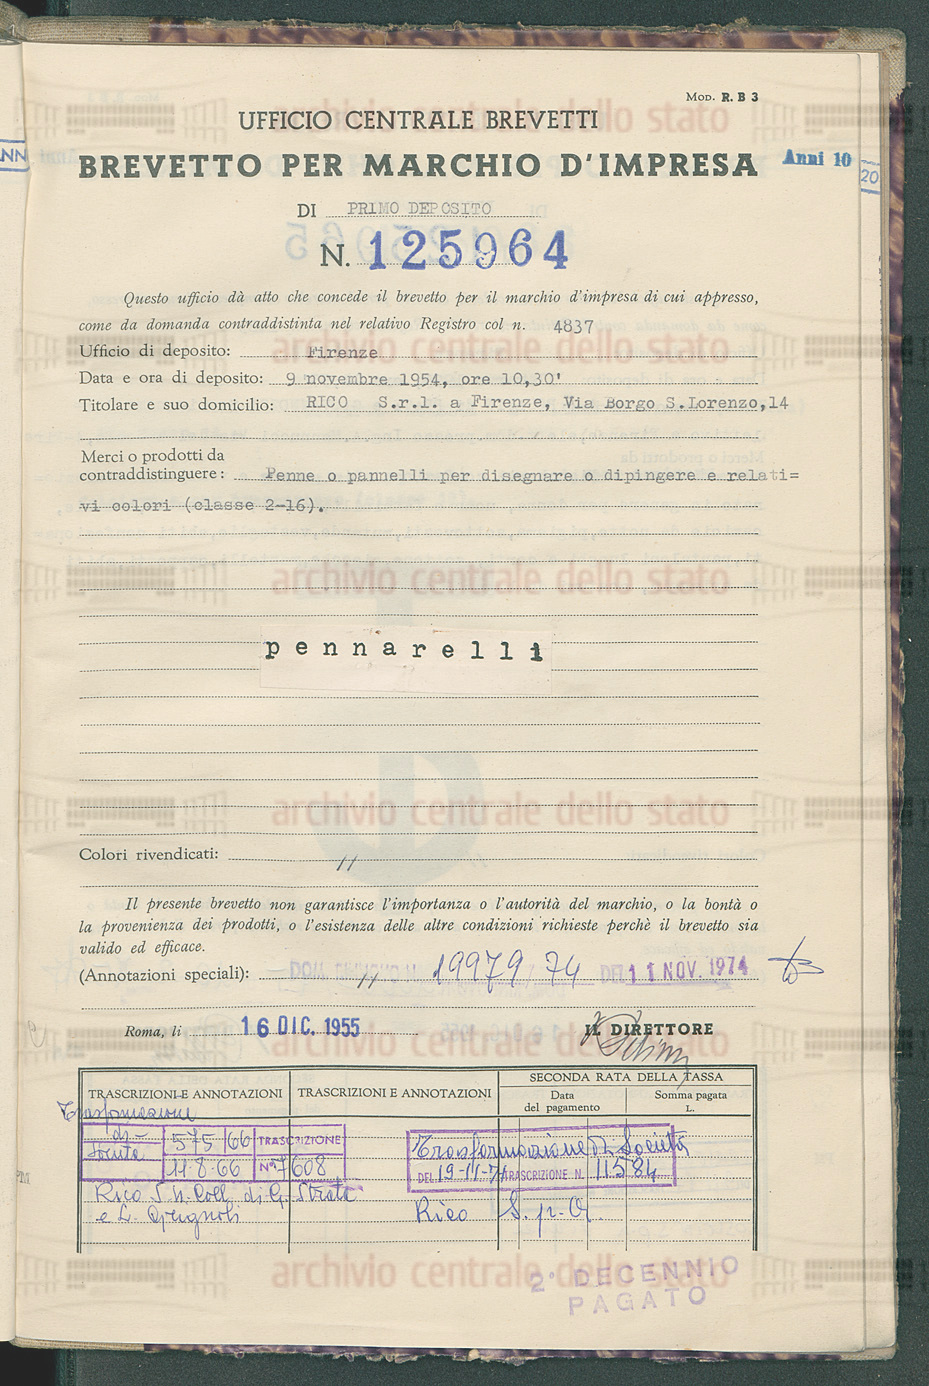 Mod. R. B 3
UFFICIO CENTRALE BREVETTI
BREVETTO PER MARCHIO D'IMPRESA
Anni 10
NN
20
DI PRIMO DEPOSITO
N. 125964
Questo ufficio dà atto che concede il brevetto per il marchio d'impresa di cui appresso,
come da domanda contraddistinta nel relativo Registro col n. 4837
Ufficio di deposito: Firenze
Data e ora di deposito: 9 novembre 1954, ore 10,30'
Titolare e suo domicilio: RICO S.r.l. a Firenze, Via Borgo S.Lorenzo,14
Merci o prodotti da
contraddistinguere: Penne o pannelli per disegnare o dipingere e relati=
vi colori (classe 2-16).
pennarelli
Colori rivendicati: //
Il presente brevetto non garantisce l'importanza o l'autorità del marchio, o la bontà o
la provenienza dei prodotti, o l'esistenza delle altre condizioni richieste perchè il brevetto sia
valido ed efficace.
(Annotazioni speciali): // 19979 74 DEL 11 NOV. 1974
Roma, li 16 DIC. 1955
IL DIRETTORE
TRASCRIZIONI E ANNOTAZIONI
TRASCRIZIONI E ANNOTAZIONI
SECONDA RATA DELLA TASSA
Data
del pagamento
Somma pagata
L.
Trasformazione
di
Società
575 66 TRASCRIZIONE
11-8-66 N° 7608
Rico S.n. Coll. di G. Strata
e L.
Trasformazione di Società
DEL 19-11-71 TRASCRIZIONE N. 11584
Rico S.p.A.
2° DECENNIO
PAGATO
archivio centrale dello stato
archivio centrale dello stato
archivio centrale dello stato
archivio centrale dello stato
archivio centrale dello stato
archivio centrale dello stato